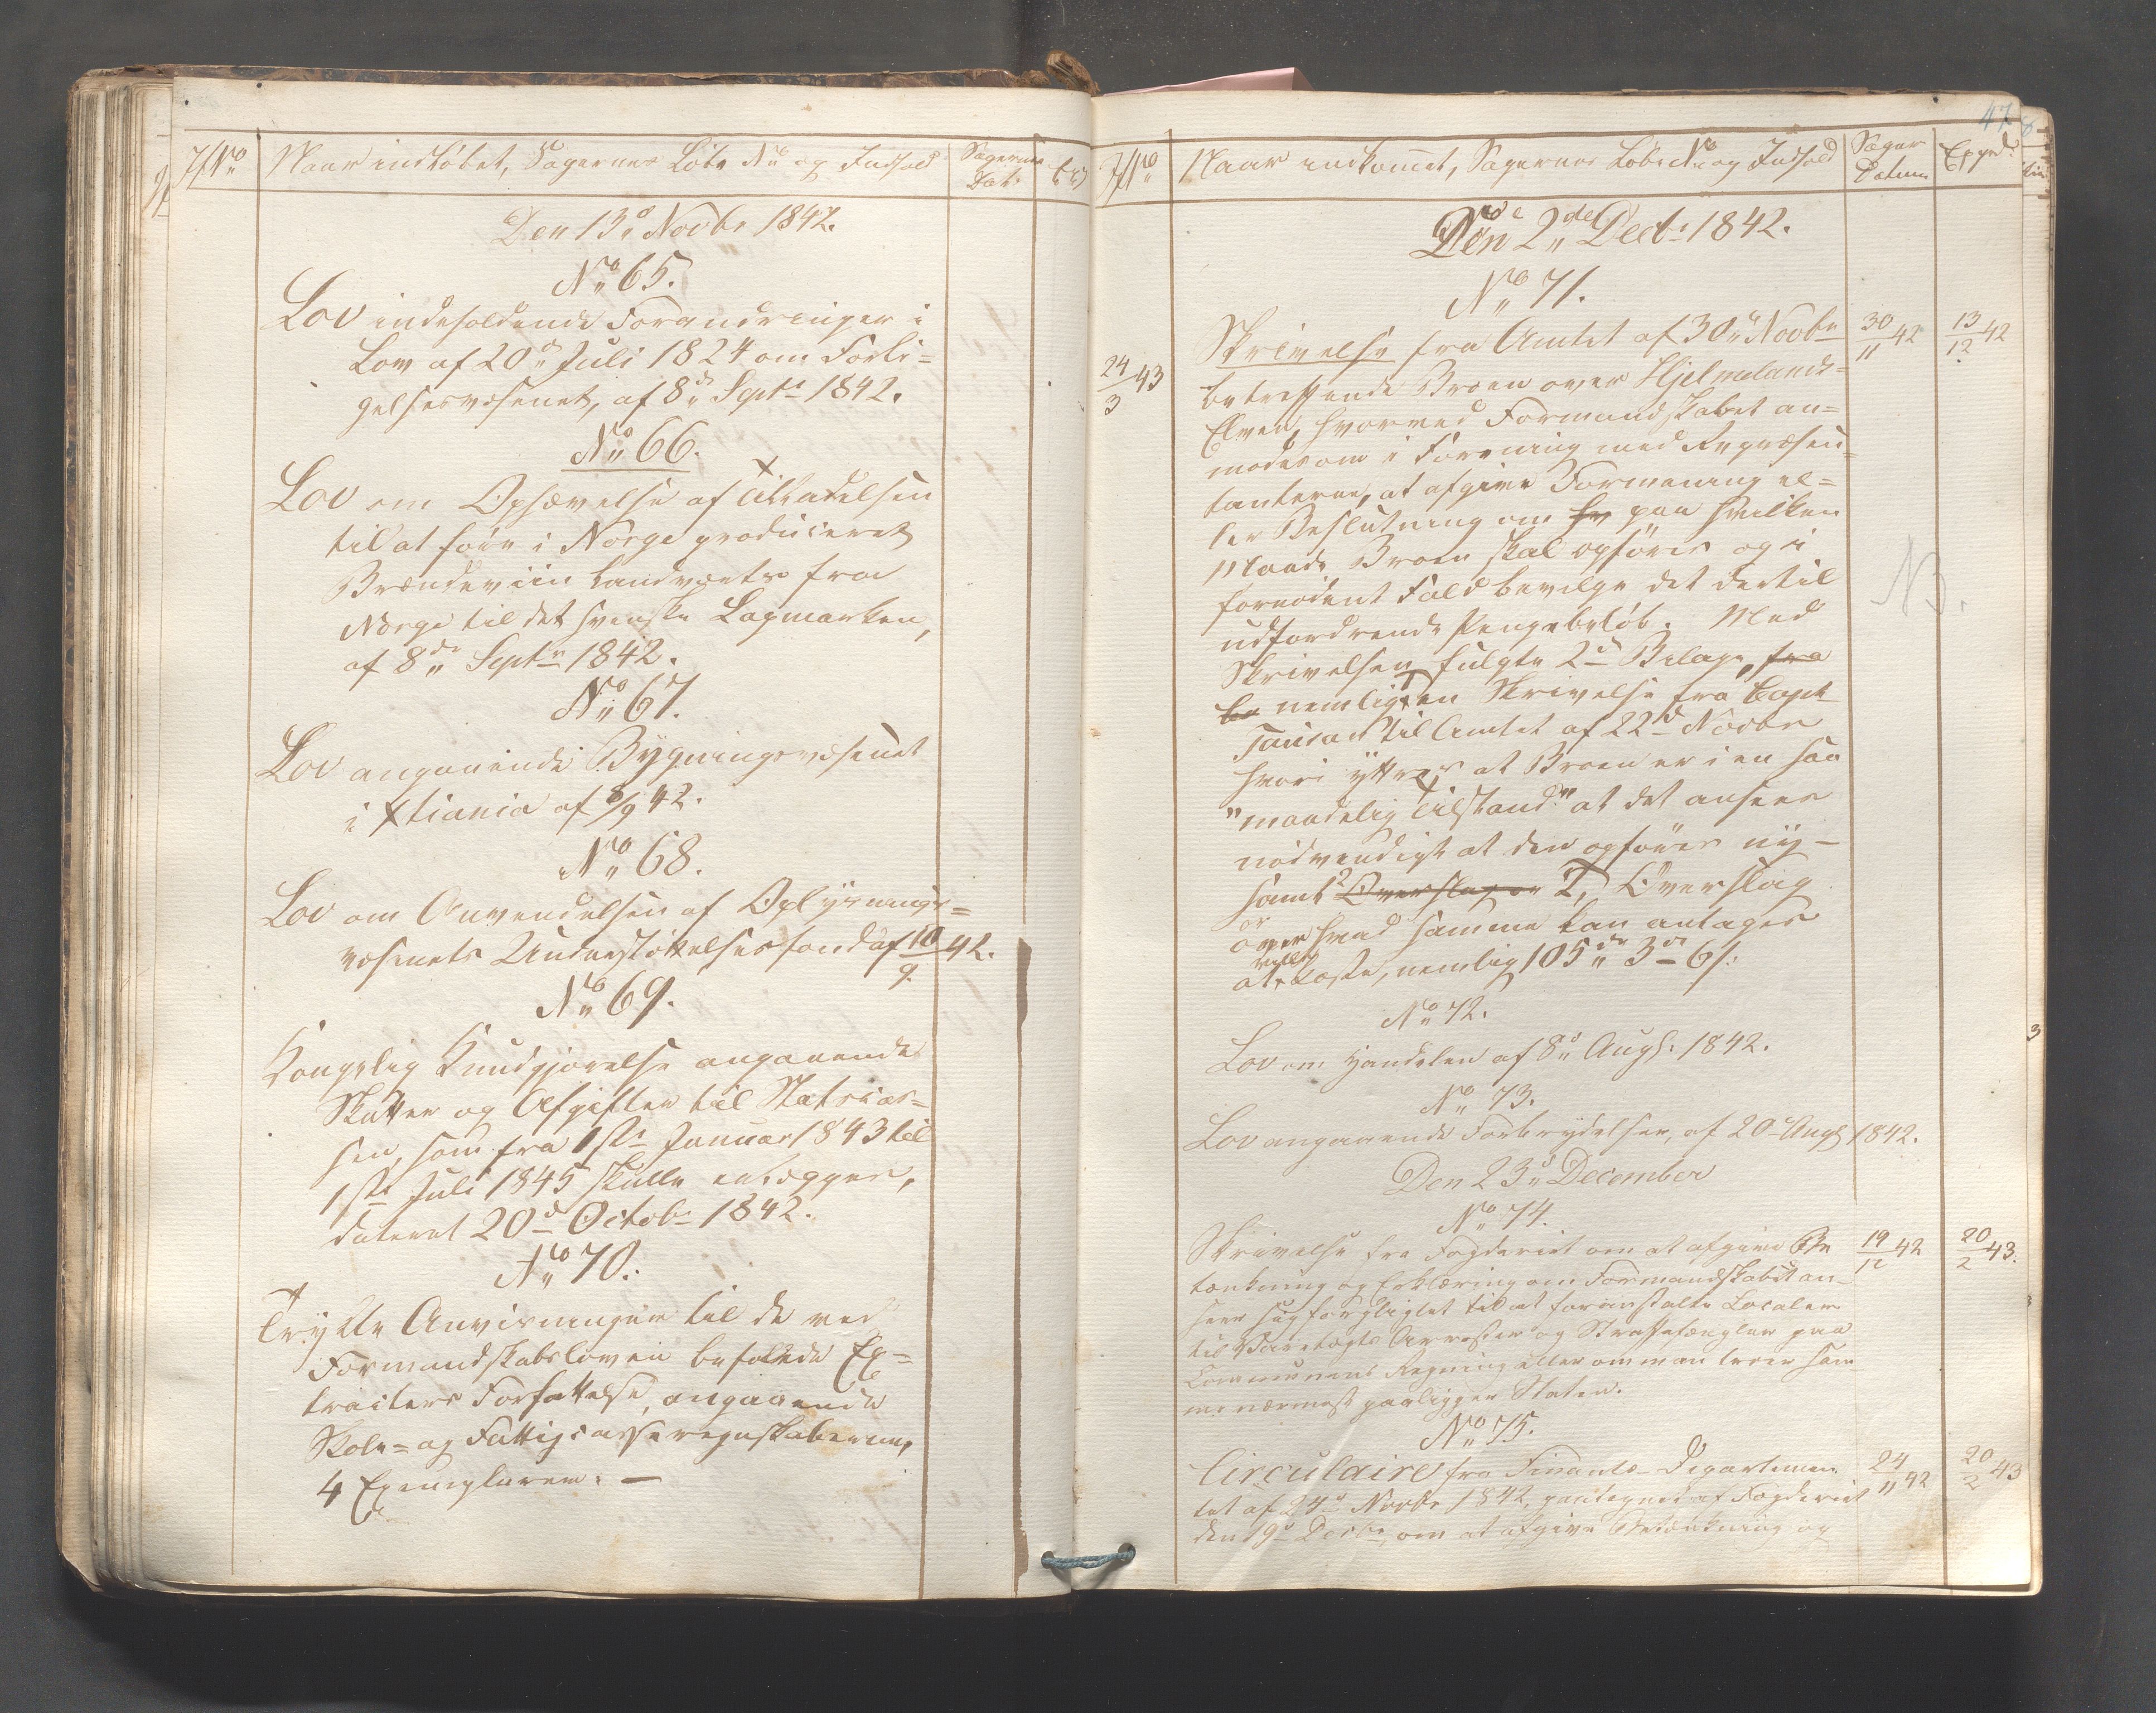 J/No
Naar indløbet, Sagernes Løbe No og Indhold
Sagernes Dat.
Den 13de Novbr 1842.
No 65.
Lov indeholdende Forandringer i
Lov af 20de Juli 1824 om Forli=
gelsesvæsenet, af 8de Septr 1842.
No 66.
Lov om Ophævelse af Tilladelsen
til at føre i Norge produceret
Brændeviin landværts fra
Norge til det svenske Lapmarken,
af 8de Septr 1842.
No 67.
Lov angaaende Bygningsvæsenet
i Xtiania af 8/9 42.
No 68.
Lov om Anvendelsen af Oplysnings=
væsenets Understøttelsesfond af 10/9 42.
No 69.
Kongelig Kundgjørelse angaaende
Skatter og Afgifter til Statscas=
sen, som fra 1ste Januar 1843 til
1ste Juli 1845 skulle erlægges,
dateret 20de Octobr 1842.
No 70.
Trykte Anvisninger til de ved
Formandskabsloven befalede Ex=
tracters Forfattelse, angaaende
Skole= og Fattigcasseregnskaberne,
4 Exemplarer. —
47
J/No
Naar indkommet, Sagernes Løbe No og Indhold
Sager Datum
Exped.
Den 2de Decbr 1842.
No 71.
24/3 43
Skrivelse fra Amtet af 30te Novbr
30/11 42
13/12 42
betreffende Broen over Hjelmelands=
Elven, hvorved Formandskabet an=
modes om i Forening med Repræsen=
tanterne, at afgive Formening el=
ler Beslutning om hv paa hvilken
Maade Broen skal opføres og i
fornødent Fald bevilge det dertil
NB.
udfordrende Pengebeløb. Med
Skrivelsen fulgte 2de Bilage, fra
be nemlig 1, en Skrivelse fra Capt
til Amtet af 22de Novbr
hvori yttres at Broen er i en saa
"maadelig Tilstand" at det ansees
nødvendigt at den opføres ny—
samt Overslag er 2, Overslag
over hvad samme kan antages
at ville koste, nemlig 105 dr 3 # 6 s:
No 72.
Lov om Handelen af 8de Augs. 1842.
No 73.
Lov angaaende Forbrydelser, af 20de Augs 1842.
Den 23de December
No 74.
Skrivelse fra Fogderiet om at afgive Be
19/12 42
20/2 43.
tænkning og Erklæring om Formandskabet an-
seer sig forpligtet til at foranstalte Localer
til Varetægts Arrester og Straffefængsler paa
Communens Regning eller om man troer sam-
me nærmest paaligger Staten.
No 75.
Circulaire fra Finants-Departemen
24/11 42
20/2 43
tet af 24de Novbr 1842, paategnet af Fogderiet
den 19de Decbr, om at afgive Betænkning og